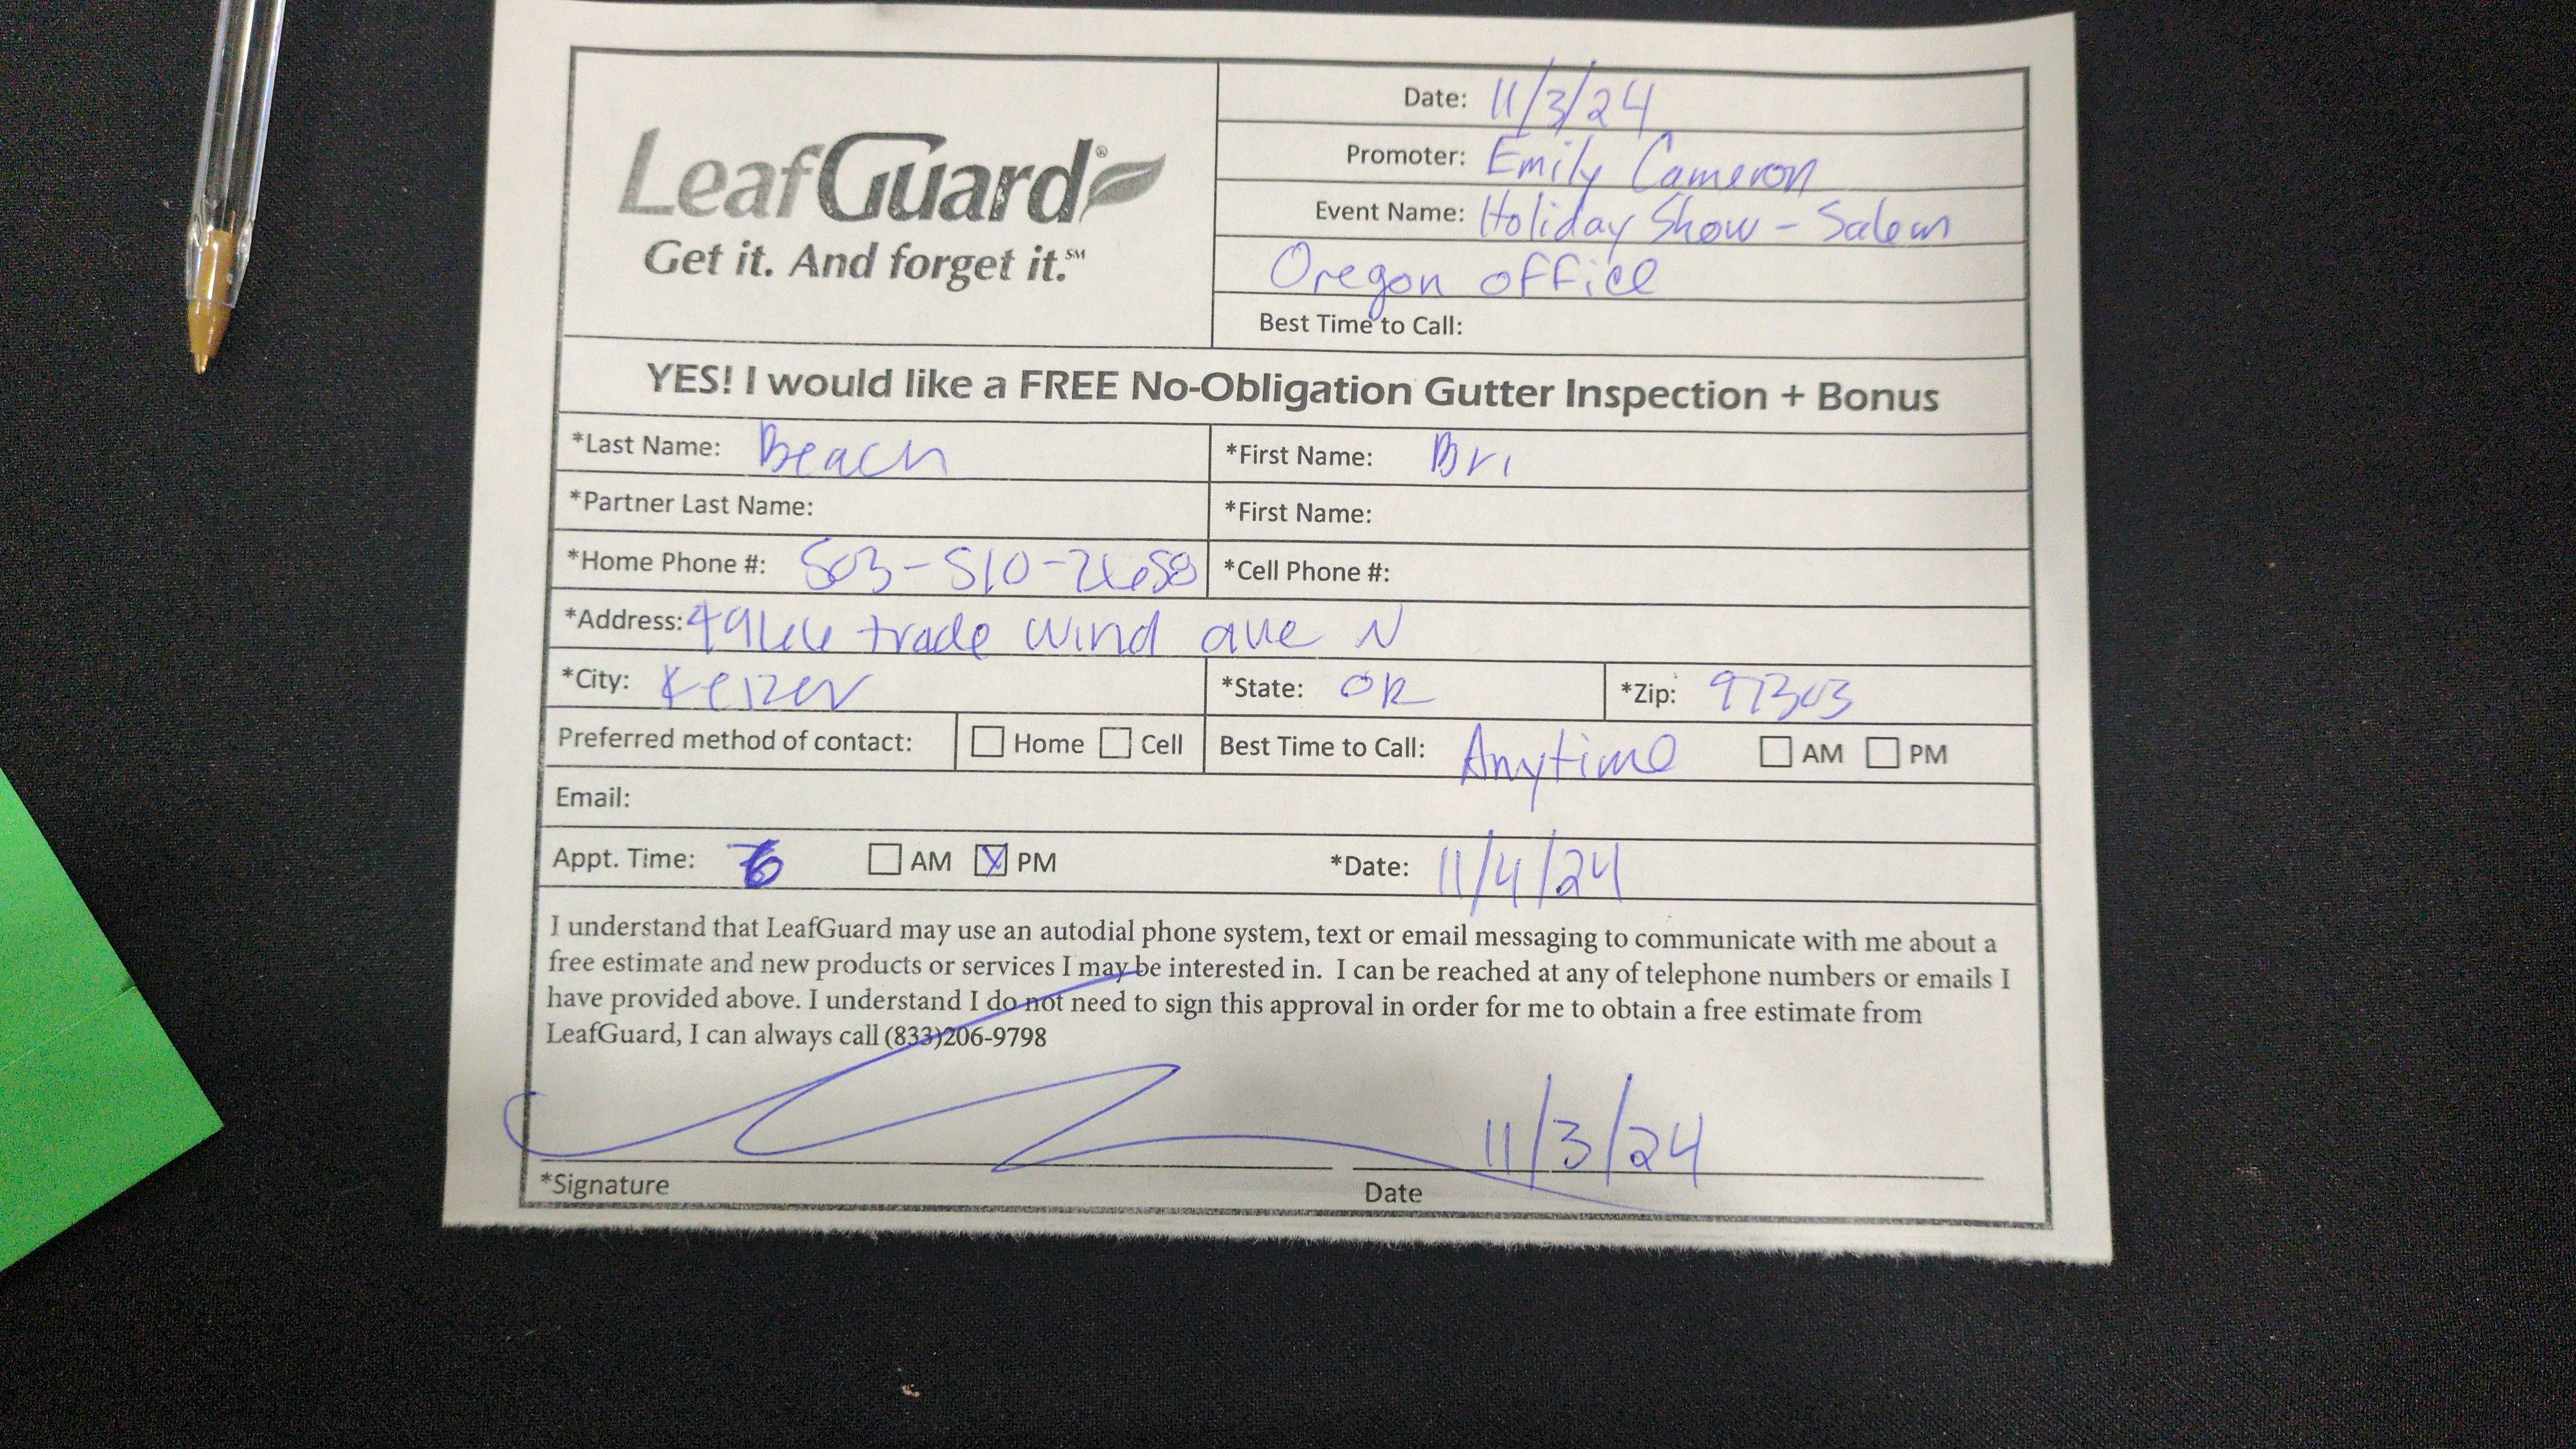 LeafGuard®
Get it. And forget it.℠
Date: 11/3/24
Promoter: Emily Cameron
Event Name: Holiday Show - Salem
Oregon office
Best Time to Call:
YES! I would like a FREE No-Obligation Gutter Inspection + Bonus
*Last Name: Beach *First Name: Bri
*Partner Last Name: *First Name:
*Home Phone #: 503-510- *Cell Phone #:
*Address: trade wind ave N
*City: Keizer *State: OR *Zip: 97303
Preferred method of contact: Home Cell Best Time to Call: Anytime AM PM
Email:
Appt. Time: 6 AM PM *Date: 11/4/24
I understand that LeafGuard may use an autodial phone system, text or email messaging to communicate with me about a
free estimate and new products or services I may be interested in. I can be reached at any of telephone numbers or emails I
have provided above. I understand I do not need to sign this approval in order for me to obtain a free estimate from
LeafGuard, I can always call (833)206-9798
11/3/24
*Signature Date